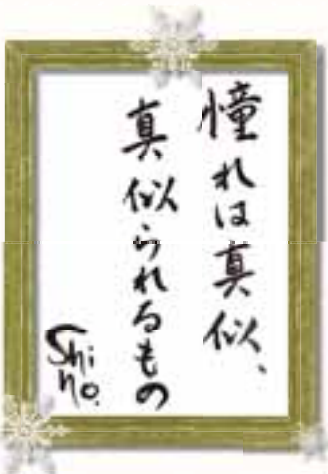 憧れは真似、
真似られるもの
Shi
no.